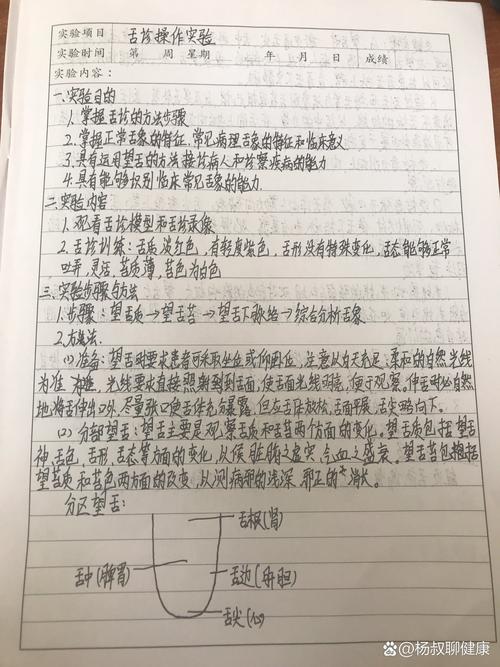 实验项目 舌诊操作实验
实验时间 第 周 星期 年 月 日 成绩
实验内容：
一.实验目的
1.掌握舌诊的方法步骤
2.掌握正常舌象的特征，常见病理舌象的特征和临床意义
3.具有运用望舌的方法接诊病人和诊察疾病的能力
4.具有能够识别临床常见舌象的能力.
二.实验内容
1.观看舌诊模型和舌诊录像
2.舌诊训练：舌质淡红色，有轻度紫色，舌形没有特殊变化，舌态能够正常
吐弄，灵活，苔质薄，苔色为白色
三.实验步骤与方法
1.步骤：望舌质→望舌苔→望舌下脉络→综合分析舌象
2.方法.
(1)准备：望舌时要求患者可采取坐位或仰卧位，注意以白天充足、柔和的自然光线
为准，光线要求直接照射到舌面，使舌面光线明亮，便于观察。伸舌时必自然
地将舌伸出口外，尽量张口使舌体充分暴露，但应舌体放松，舌面平展，舌尖略向下。
(2)分部望舌：望舌主要是观察舌质和舌苔两个方面的变化。望舌质包括望舌
神舌色，舌形，舌态等方面的变化，以候脏腑之虚实，气血之盛衰。望舌苔包括
望苔质和苔色两方面的改变，以测病邪的浅深，邪正的消长。
分区望舌：
舌根(肾)
舌中(脾胃)
舌边(肝胆)
舌尖(心)
@杨叔聊健康